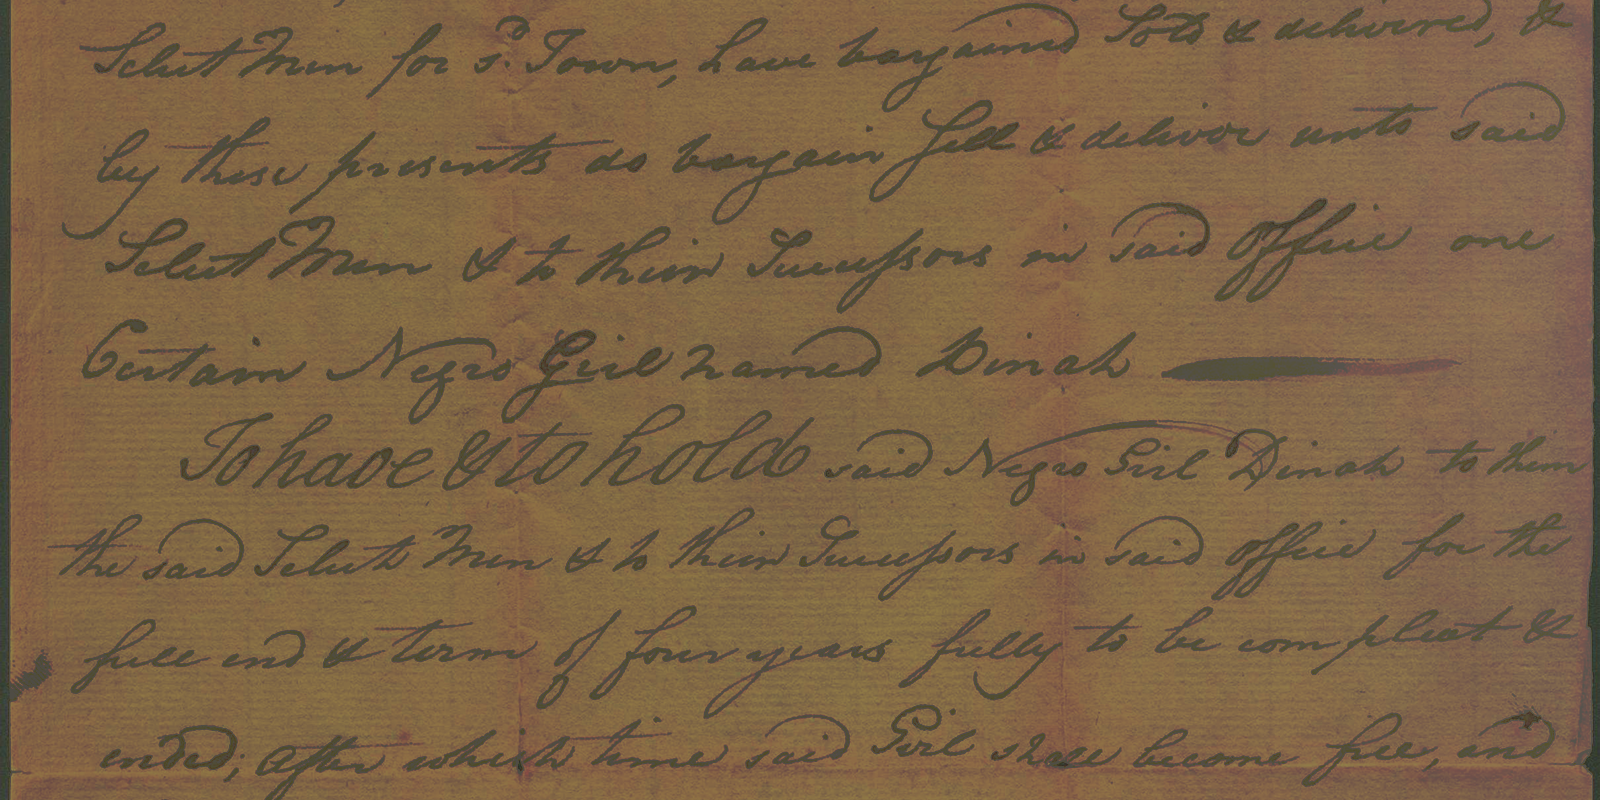 Select Men for sd. Town, have bargained Sold & delivered, &
by these presents do bargain Sell & deliver unto said
Select Men & to their Successors in said Office one
Certain Negro Girl named Dinah
To have & to hold said Negro Girl Dinah to them
the said Select Men & to their Successors in said Office for the
full end & term of four years fully to be compleat &
ended; after which time said Girl shall become free, and